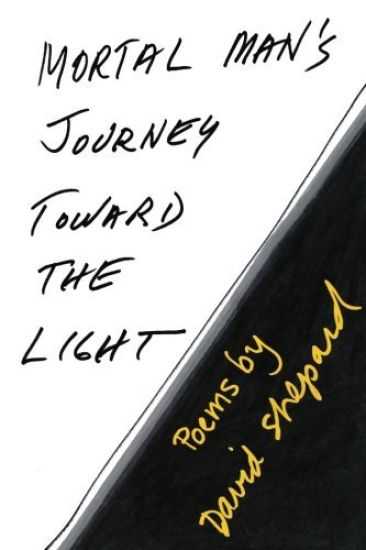 MORTAL MAN'S
JOURNEY
TOWARD
THE
LIGHT
Poems by
David Shepard